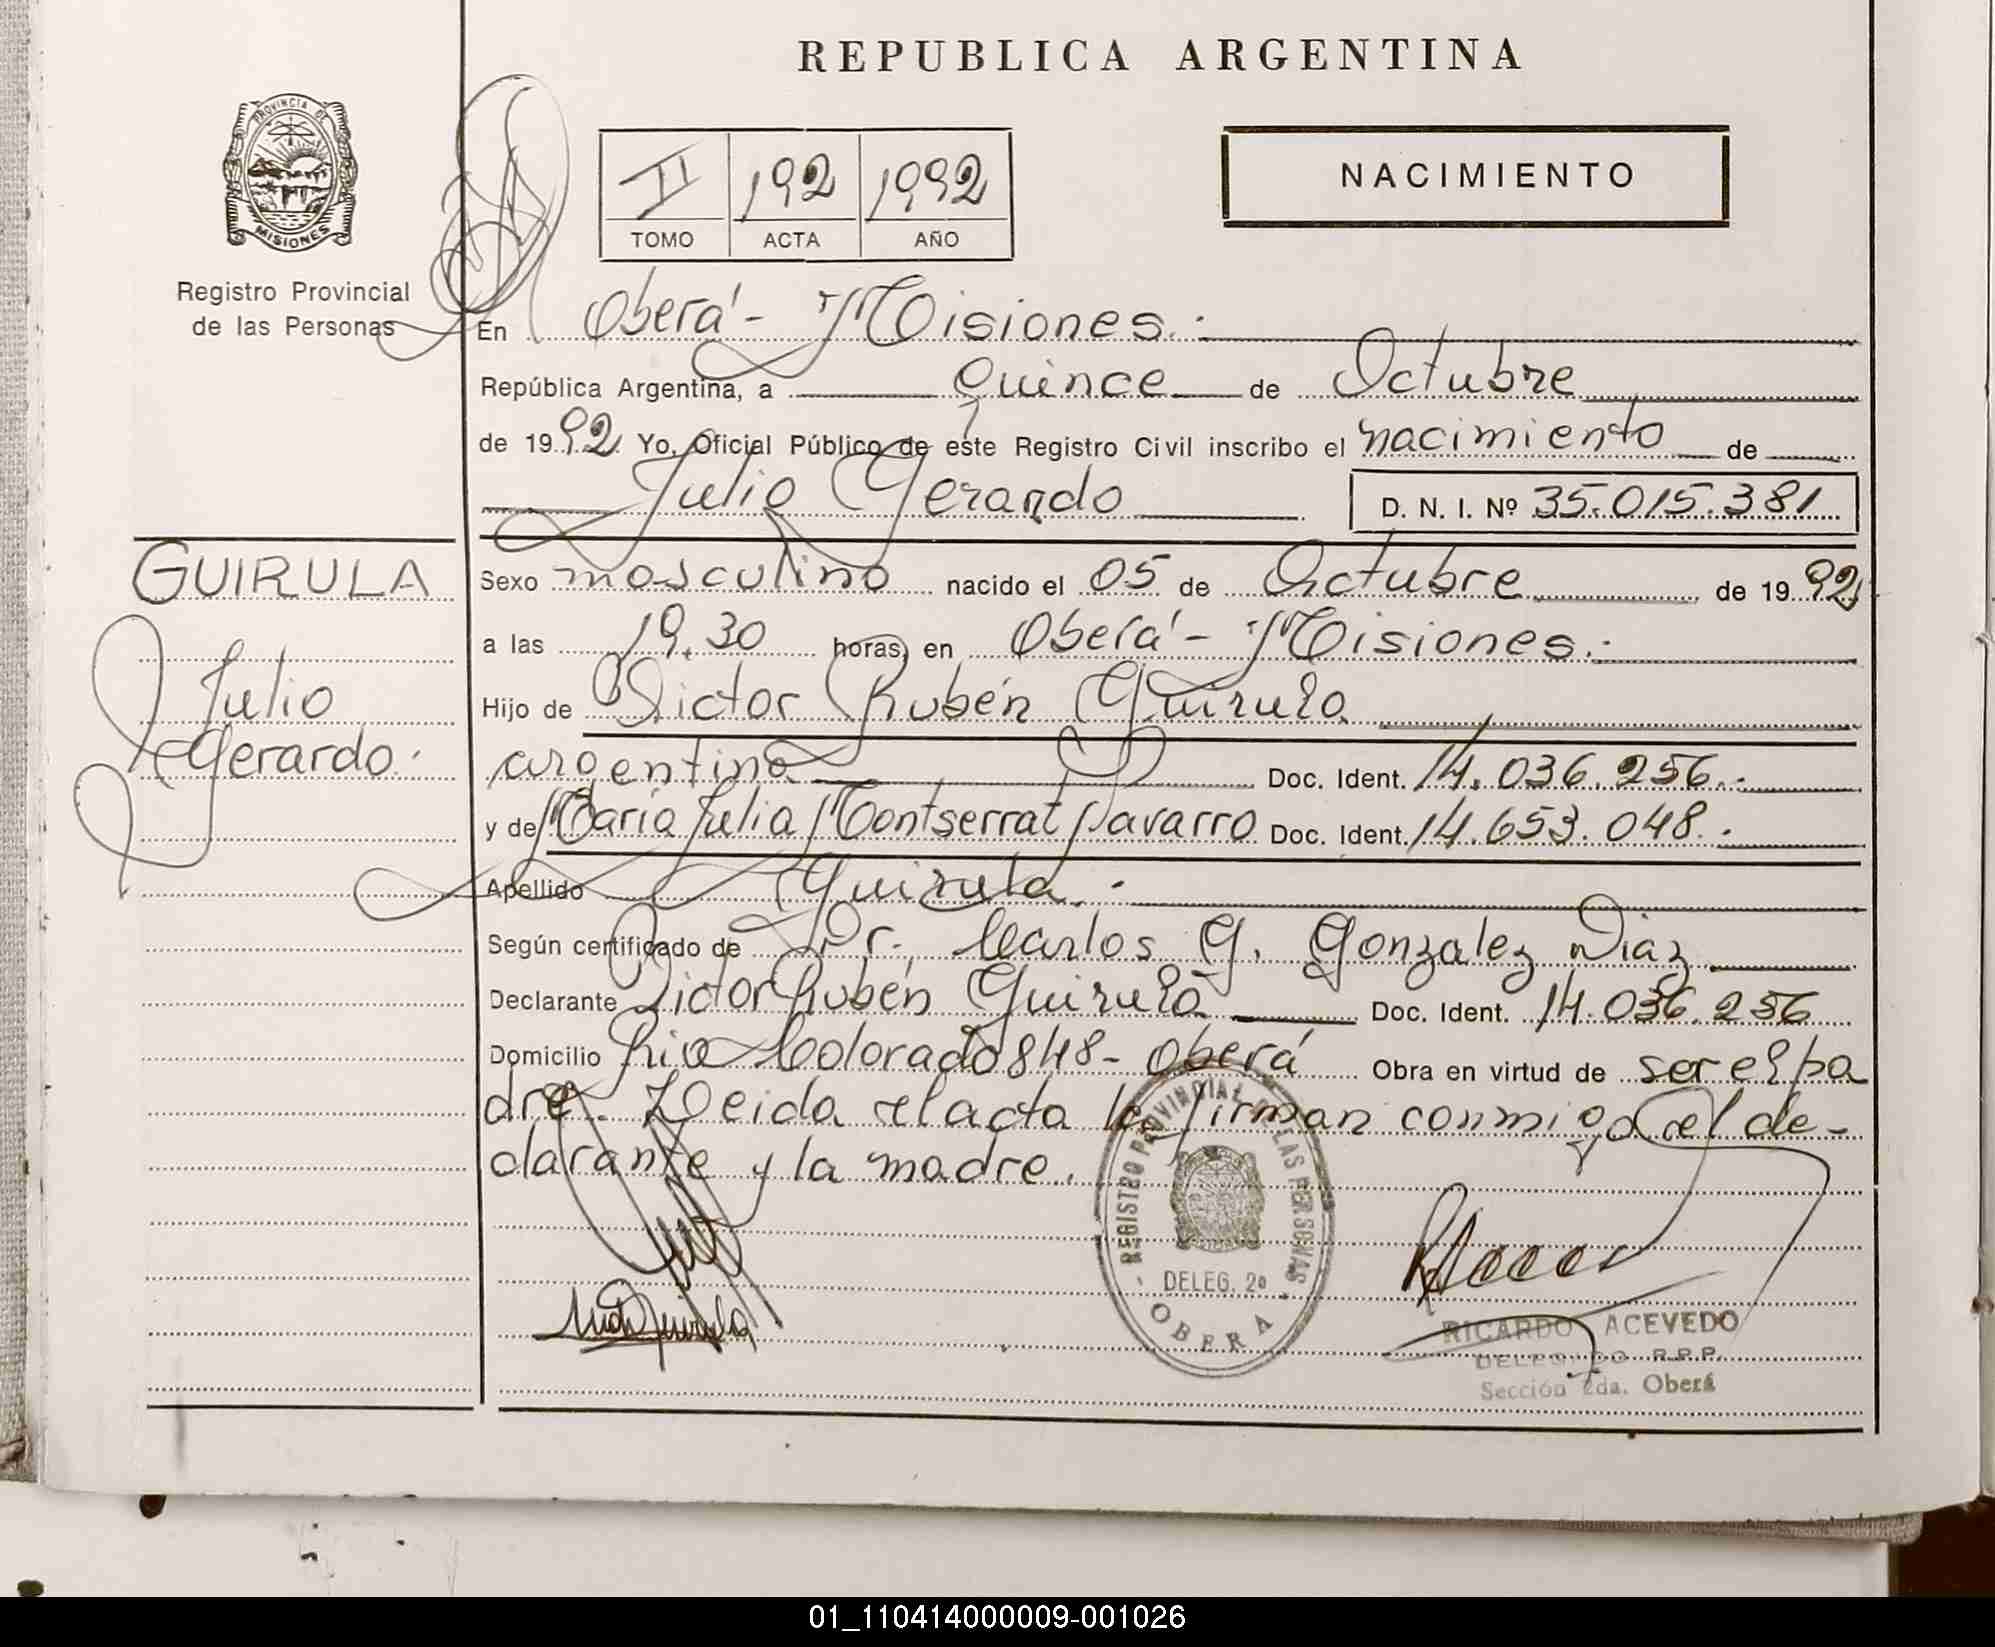 REPUBLICA ARGENTINA
PROVINCIA DE
MISIONES
Registro Provincial
de las Personas
II 192 1992
TOMO ACTA AÑO
NACIMIENTO
En Oberá - Misiones.-
República Argentina, a Quince de Octubre
de 1992 Yo, Oficial Público de este Registro Civil inscribo el nacimiento de
Julio Gerardo D. N. I. Nº 35.015.381
GUIRULA
Julio
Gerardo.
Sexo masculino nacido el 05 de Octubre de 1992
a las 19.30 horas, en Oberá - Misiones.-
Hijo de Victor Rubén Guirula
argentino Doc. Ident. 14.036.256.-
y de María Julia Montserrat Navarro Doc. Ident. 14.653.048.-
Apellido Guirula.-
Según certificado de Dr. Carlos G. Gonzalez Diaz
Declarante Victor Rubén Guirula Doc. Ident. 14.036.256
Domicilio Rio Colorado 848 - Oberá Obra en virtud de ser el pa
dre. Leida el acta la firman conmigo el de-
clarante y la madre.
REGISTRO PROVINCIAL DE LAS PERSONAS
DELEG. 2ª
OBERA
RICARDO ACEVEDO
DELEGADO R.P.P.
Sección 2da. Oberá
01_110414000009-001026